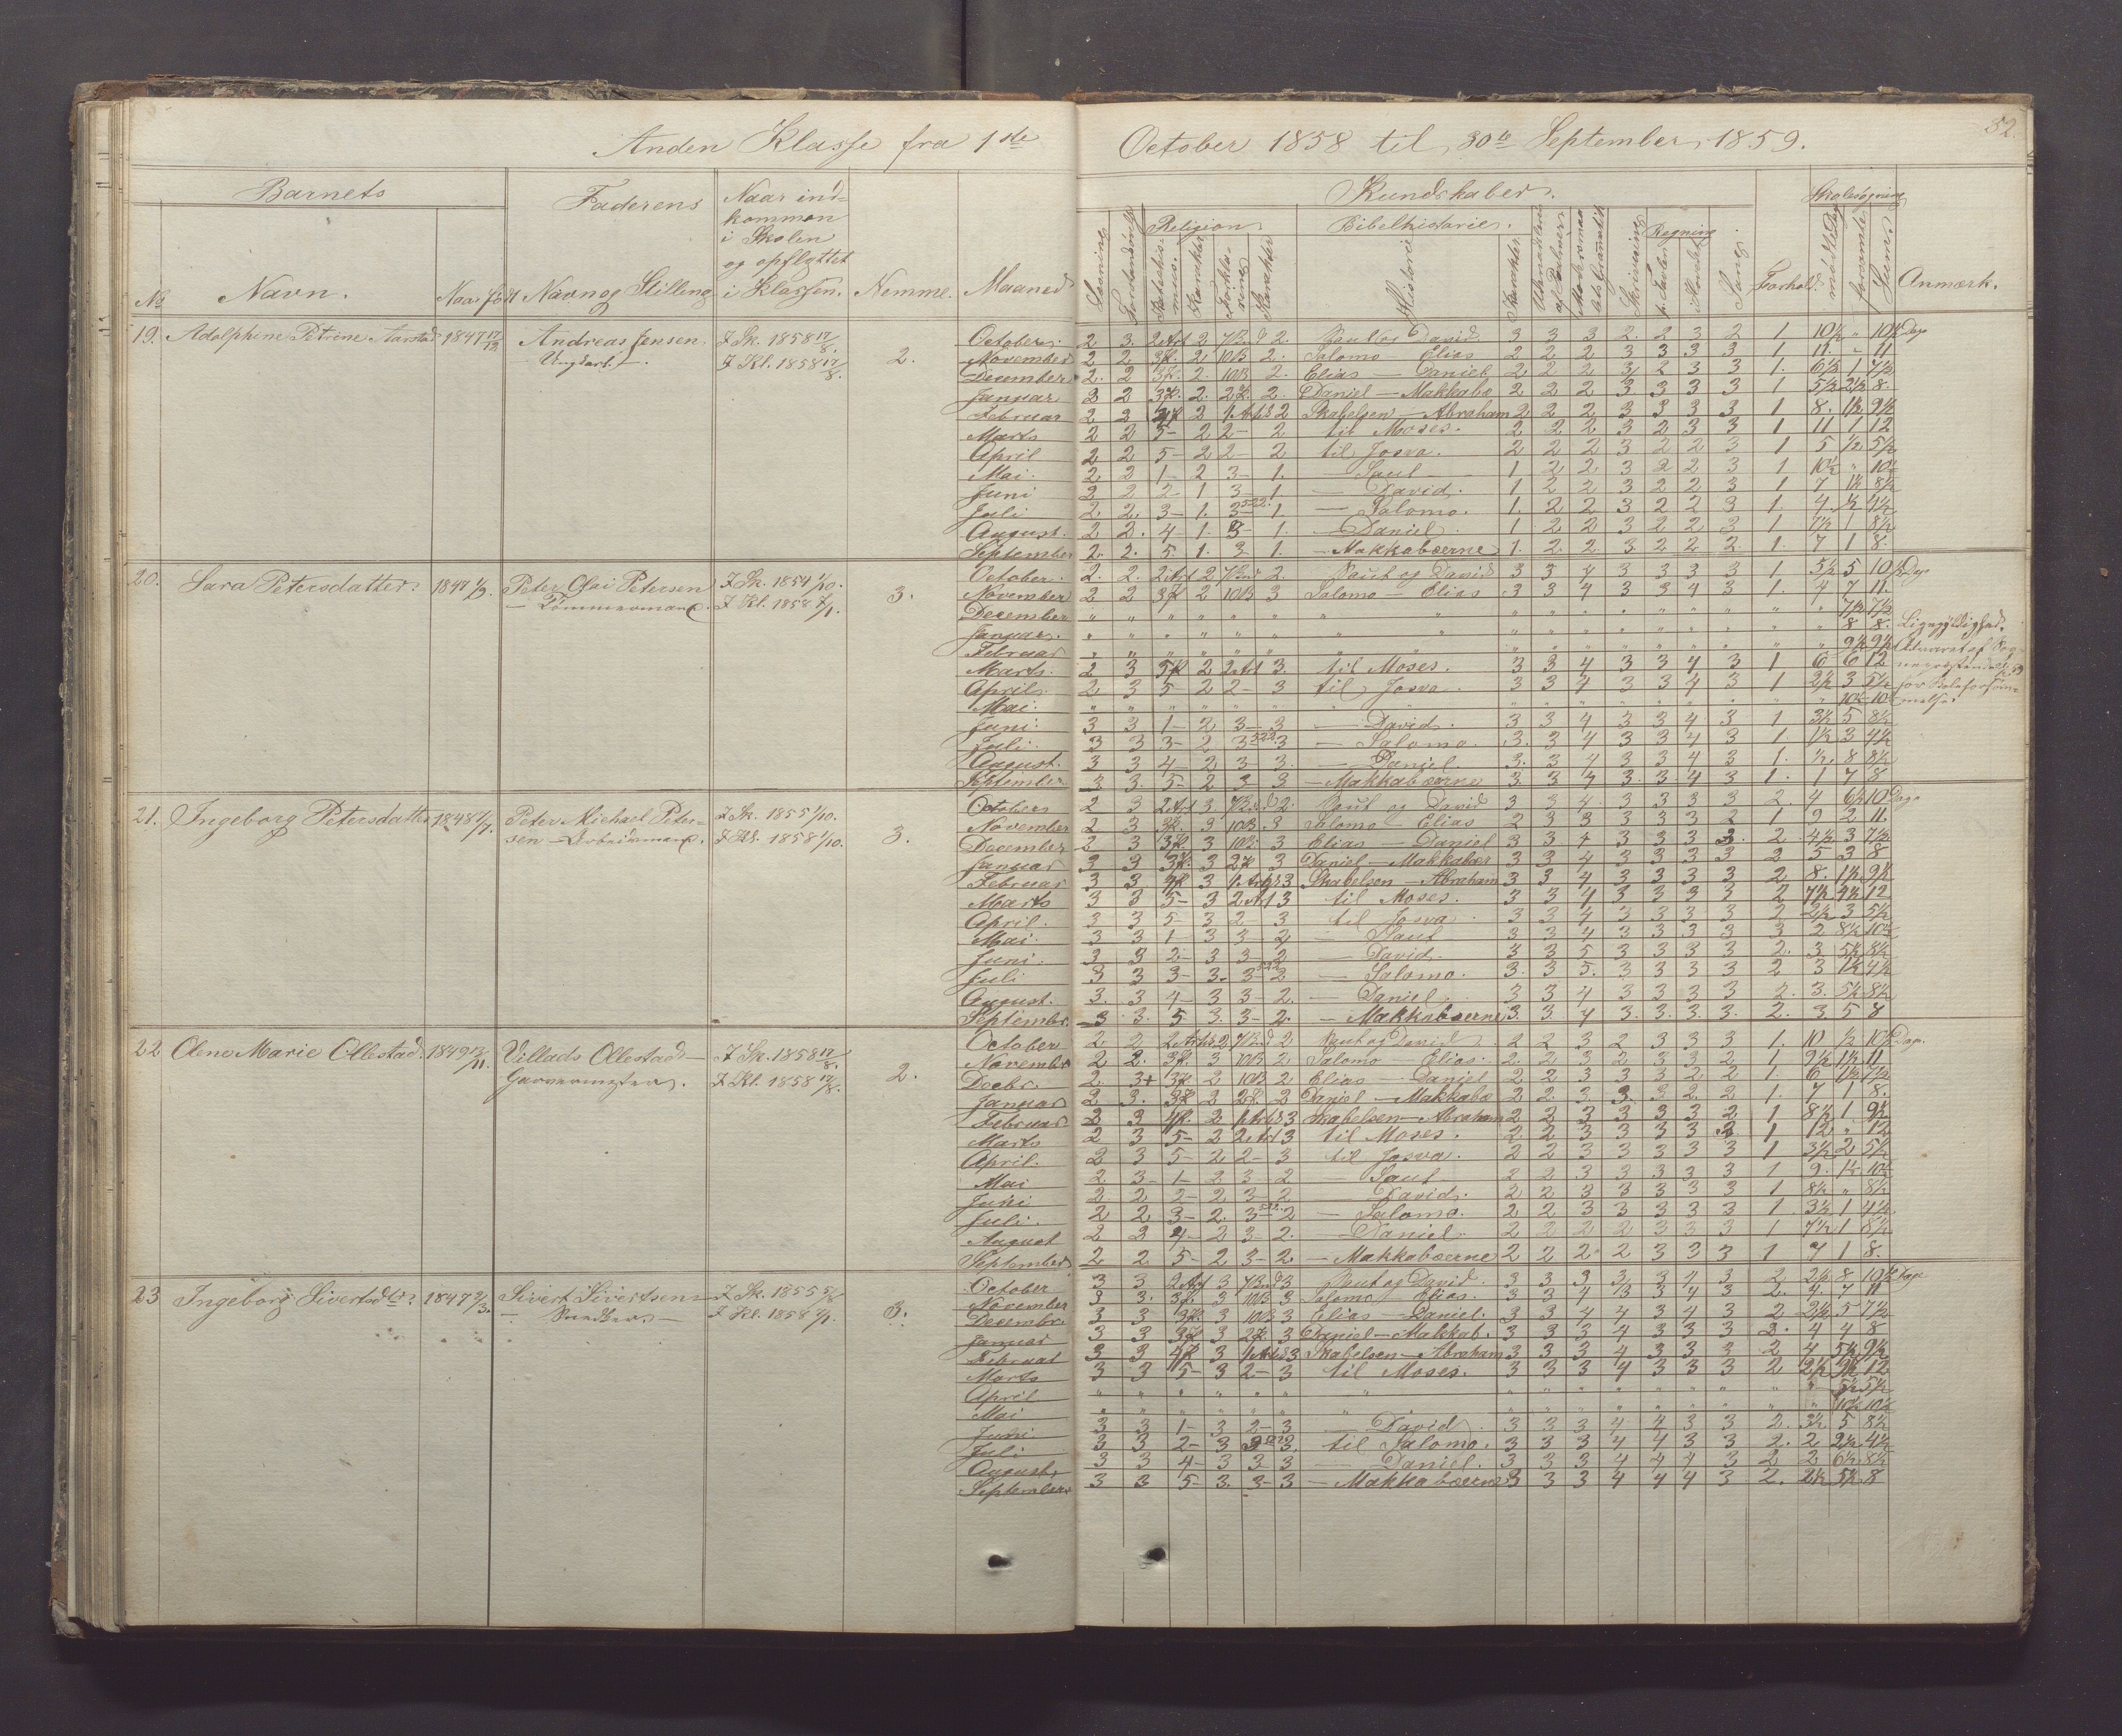 Anden Klasse fra 1ste October 1858 til 30te September 1859.
52.
Barnets
Faderens
Naar ind-
kommen
i Skolen
og opflyttet
i Klassen.
Kundskaber.
Skolesøgning
No
Navn.
Naar født
Navn og Stilling
Nemme.
Maaned
Religion
Bibelhistorie.
Regning
Læsning
Historie
Karakter
Skrivning
Sang
Forhold
mødt Dage
forsømte
Sum.
Anmærk.
19. Adolphine Petrine Aarstad 1847 17/12 Andreas Jensen I Sk. 1858 17/8. 2.
I Kl. 1858 17/8.
October 2 3. 2 Art 2 7 Bud 2. Saul og David 3 3 3 2. 2 3 2 1. 10½ " 10½ Dage
November 2 2 3 2 10B 2. Salomo – Elias 2 2 2 3 3 3 3 1 11. " 11
December 2. 2 3 2. 10B 2. Elias — Daniel 2 2 2 3 2 3 3 1. 6½ 1 7½
Januar 2 2 3 2. 2 2. Daniel — Makkabæ 2 2 2 3 3 3 3 1 5½ 2½ 8.
Februar 2 2 2 1 Art 2 Skabelsen — Abraham 2 2 2 3 3 3 3 1 8. 1½ 9½
Marts 2 2 5– 2 2– 2 til Moses. 2 2 2 3 2 3 3 1 11 1 12
April 2 2 5– 2 2– 2 til Josva. 2 2 2 3 2 2 3 1 5 ½ 5½
Mai. 2 2 1– 2 3– 1. — Saul 1 2 2 3 2 2 3 1 10½ " 10½
Juni 2 2 2– 1 3– 1. — David. 1 2 2 3 2 2 3 1 7 1½ 8½
Juli 2. 2. 3– 1. 3– 1. — Salomo. 1. 2 2 3 2 2 3 1. 4. ½ 4½
August. 2 2. 4– 1. 3– 1 — Daniel. 1 2 2 3 2 2 3 1 7½ 1 8½
September 2. 2. 5. 1. 3 1. — Makkabæerne 1. 2. 2. 3. 2 2 2. 1. 7 1 8.
20. Sara Petersdatter. 1847 1/9. Peter Olai Petersen I Sk. 1854 1/10. 3.
— Tømmermand. I Kl. 1858 7/1.
October. 2. 2. 2 Art 2 7 Bud 2. Saul og David 3 3 4 3 3 3 3 1 5½ 5 10½ Dage
November 2 2 3 2 10B 3 Salomo – Elias 3 3 4 3 3 4 3 1. 4 7 11.
December " " " " " " " " " " " " " " " " 7½ 7½
Januar. " " " " " " " " " " " " " " " " 8 8. Ligegyldighed.
Februar " " " " " " " " " " " " " " " " 9½ 9½
Marts. 2 3 5 2 2 Art 3. til Moses. 3 3 4 3 3 4 3 1 6 6 12
April. 2 3 5– 2 2– 3 til Josva. 3 3 4 3 3 4 3 1 2½ 3 5½
Mai. " " " " " " " " " " " " " " " " 10½ 10½
Juni. 3 3 1– 2 3– 3 — David. 3 3 4 3 3 4 3 1 3½ 5 8½
Juli. 3 3 3– 2 3– 3 — Salomo. 3. 3 4 3 3 4 3 1. 1½ 3 4½
August. 3 3 4– 2 3– 3. — Daniel. 3. 3 4 3 3 4 3 1. ½ 8 8½
September 3 3. 5– 2 3 3 — Makkabæerne 3. 3 4 3. 3. 4 3 1. 1 7 8
21. Ingeborg Petersdatter 1848 Peter Michael Peter- I Sk. 1855 1/10. 3.
sen — Arbeidsmand. I Kl. 1858 1/10.
October 2 3 2 Art 3. 7 Bud 2. Saul og David 3 3 4. 3 3 3 3 2. 4 6½ 10 Dage
November 2 3 3 3 10B 3 Salomo – Elias 2 3 3 3 3 3 2 1 9 2 11.
December 2 3 3 3 10B 3 Elias — Daniel 3 3 4 3 3 3 3. 2. 4½ 3 7½
Januar 3 3 3 3 2 3 Daniel — Makkabæer 3 3 4 3 3 3 3 2 5 3 8
Februar 3 3 4 3 1 Art 3 Skabelsen — Abraham 3 3 4 3 3 3 3 2 8. 1½ 9½
Marts 3 3 5– 3 2 Art 3 til Moses. 3 3 4 3 3 3 3 2 7½ 4½ 12
April. 3 3 5– 3 2– 3 til Josva. 3 3 4 3 3 3 3 2 2½ 3 5½
Mai. 3 3 1– 3 3– 2 — Saul 3 3 4 3 3 3 3 3 2 8½ 10½
Juni. 3 3 2– 3 3– 2 — David. 3 3 5 3 3 3 3 2. 3 5½ 8½
Juli 3 3 3– 3. 3– 2 — Salomo. 3. 3 5. 3 3 3 3 2 3 1½ 4½
August. 3. 3 4– 3 3– 2. — Daniel. 3 3 4 3 3 3 3 2. 3. 5½ 8½
Septembr. 3 3. 5 3. 3– 2. — Makkabæerne 3. 3. 4 3. 3. 3. 3. 2. 3 5 8
22 Olene Marie Ollestad. 1849 13/11. Villads Ollestad — I Sk. 1858 17/8. 2.
Garvermester. I Kl. 1858 17/8.
October 2 2 2 Art 2 7 Bud 2 Saul og David 2 2 3 2 3 3 3 1. 10 ½ 10½ Dage
Novembr 2 2. 3 3 10B 2 Salomo – Elias. 2. 2 3 2 3 3 2 1 9½ 1½ 11
Decbr. 2. 3+ 3 2 10B 2 Elias — Daniel 2 2 3 3 3 2 2 1. 6 1½ 7½
Januar 2 3. 3 2 2 2 Daniel — Makkabæ 2 2. 3 3. 3 2. 2 1. 7 1 8.
Februar 2 3 4 2 1 Art 3 Skabelsen — Abraham 2 2 3 3 3 3 2 1 8½ 1 9½
Marts 2 3 5– 2 2 Art 3 til Moses. 2 2 3 3 3 3 3 1 12 " 12
April. 2 3 5– 2 2– 3 til Josva. 2 2 3 3 3 3 3 1 3½ 2 5½
Mai 2. 3– 1– 2 3– 2 — Saul 2 2 3 3 3 3 3 1 9. 1½ 10½
Juni 2. 2 2– 2 3– 2 — David. 2 2 3 3 3 3 3 1 8½ " 8½
Juli. 2 2 3– 2. 3– 2 — Salomo. 2 2 3 3 3 3 3 1. 3½ 1 4½
August 2 2 4– 2 3– 2. — Daniel. 2 2 2 2 3 3 3 1 7½ 1 8½
September 2 2 5– 2 3– 2 — Makkabæerne 2 2 2 2 3 3 3 1 7 1 8.
23 Ingeborg Sivertsdtr. 1847 2/3. Sivert Sivertsen — I Sk. 1855 5/6 3.
— Snedker — I Kl. 1858 7/1.
October 3 3 2 Art 3 7 Bud 3 Saul og David. 3 3 3 3 3 4 3 2 2½ 8 10½ Dage
November 3 3. 3 3 10B 3 Salomo – Elias. 3 3 4 3 3 4 3 2. 4. 7 11
Decembr. 3 3 3 3 10B 3 Elias — Daniel. 3 3 4 4 3 4 3 2 2½ 5 7½
Januar 3 3 3 3 2 3 Daniel — Makkab. 3 3 3 4 3 3 3 2. 4 4 8
Februar 3 3 4 3 1 Art 3 Skabelsen — Abraham 3 3 3 4 3 3 3 2 4 5½ 9½
Marts 3 3 5– 3 2– 3 til Moses. 3 3 3 4 3 3 3 2 2½ 9½ 12
April " " " " " " " " " " " " " " " " 5½ 5½
Mai " " " " " " " " " " " " " " " " 10½ 10½
Juni 3 3 1– 3 2– 3 — David 3 3 3 4 4 3 3 2. 3½ 5 8½
Juli 3 3 2– 3 3 3. til Salomo. 3 3 3 4 4 3 3 2. 2 2½ 4½
August 3 3 4– 3 3– 3 — Daniel. 3 3 3 4 4 4 3 2 2 6½ 8½
September 3 3 5– 3. 3– 3 — Makkabæerne 3 3 3 4 4 4 3 2. 2½ 5½ 8